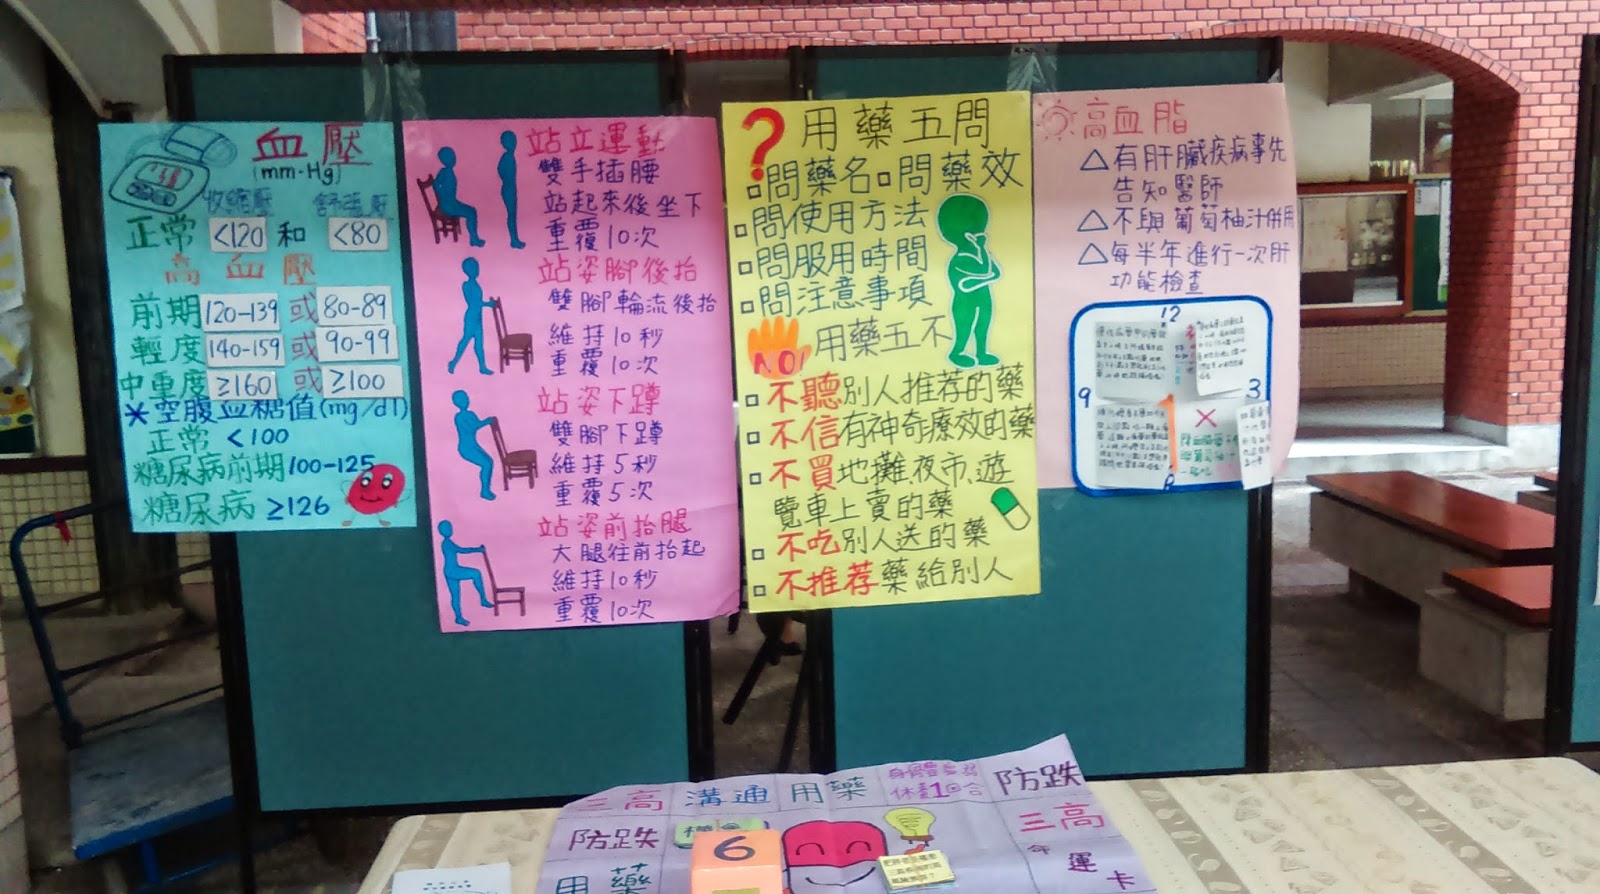 血壓
(mm-Hg)
收縮壓 舒張壓
正常 <120 和 <80
高血壓
前期 120-139 或 80-89
輕度 140-159 或 90-99
中重度 ≥160 或 ≥100
*空腹血糖值(mg/dl)
正常 <100
糖尿病前期100-125
糖尿病 ≥126
站立運動
雙手插腰
站起來後坐下
重覆10次
站姿腳後抬
雙腳輪流後抬
維持10秒
重覆10次
站姿下蹲
雙腳下蹲
維持5秒
重覆5次
站姿前抬腿
大腿往前抬起
維持10秒
重覆10次
? 用藥五問
□問藥名□問藥效
□問使用方法
□問服用時間
□問注意事項
NO! 用藥五不
□不聽別人推荐的藥
□不信有神奇療效的藥
□不買地攤、夜市、遊
覽車上賣的藥
□不吃別人送的藥
□不推荐藥給別人
高血脂
△有肝臟疾病事先
告知醫師
△不與葡萄柚汁併用
△每半年進行一次肝
功能檢查
12
9
3
三高 溝通 用藥
休息1回合
防跌
防跌
三高
用藥
6
命運卡